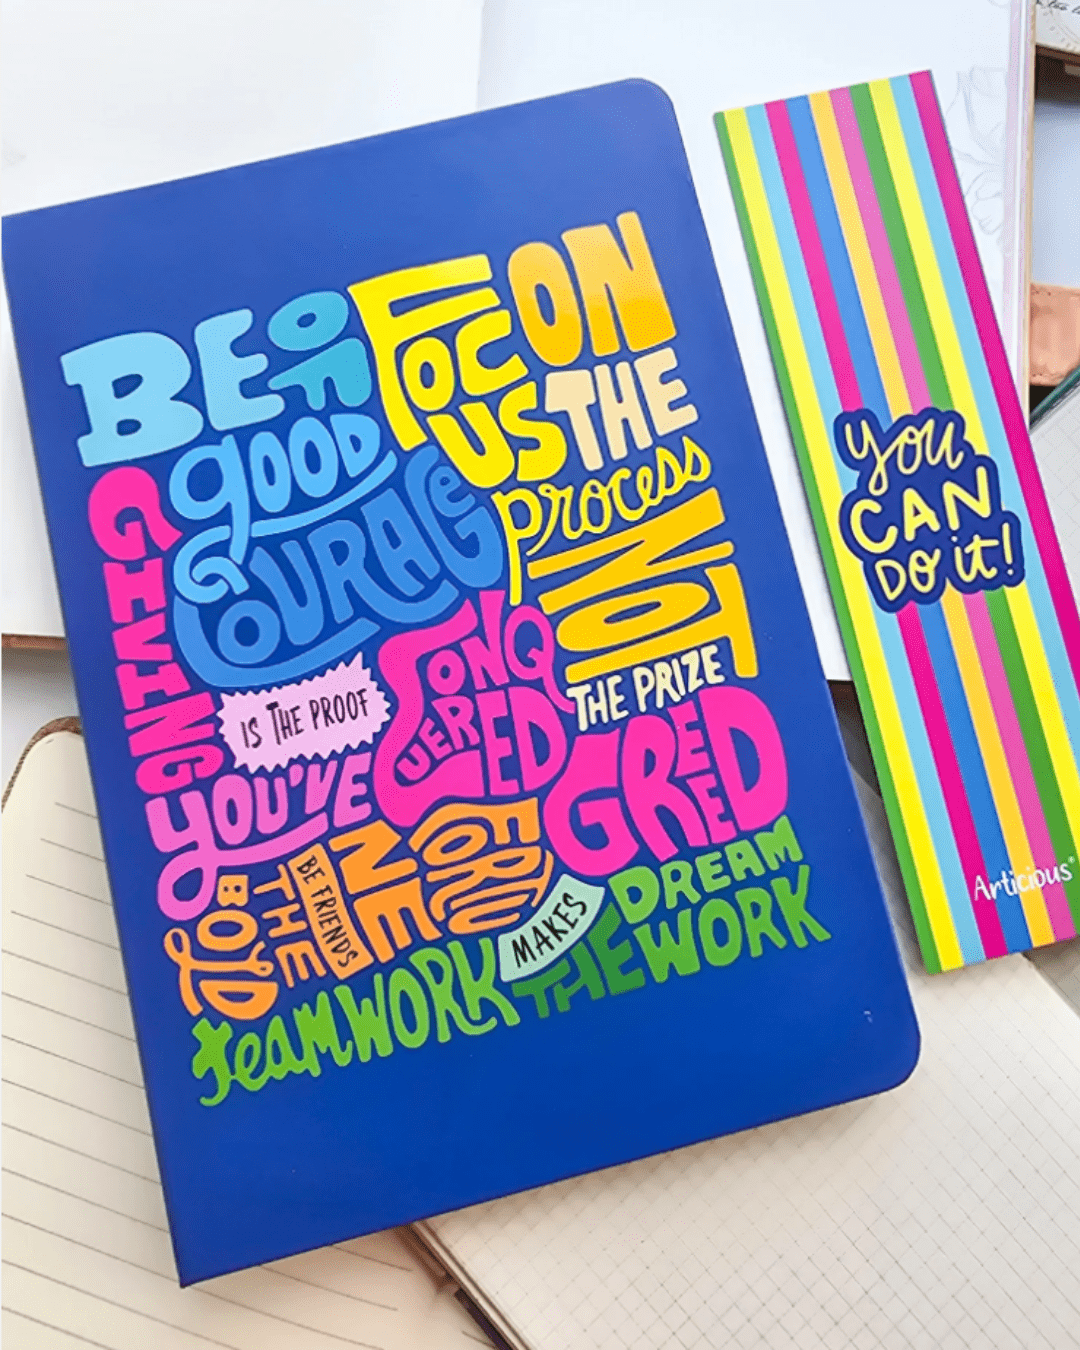 BE OF
good
COURAGE
FOCUS ON
THE
process
NOT
THE PRIZE
GIVING
IS THE PROOF
YOU'VE
CONQUERED
GREED
FORTU
NE
BE FRIENDS
THE
BOLD
TEAMWORK
MAKES
THE
DREAM
WORK
you
CAN
DO it!
Articious®